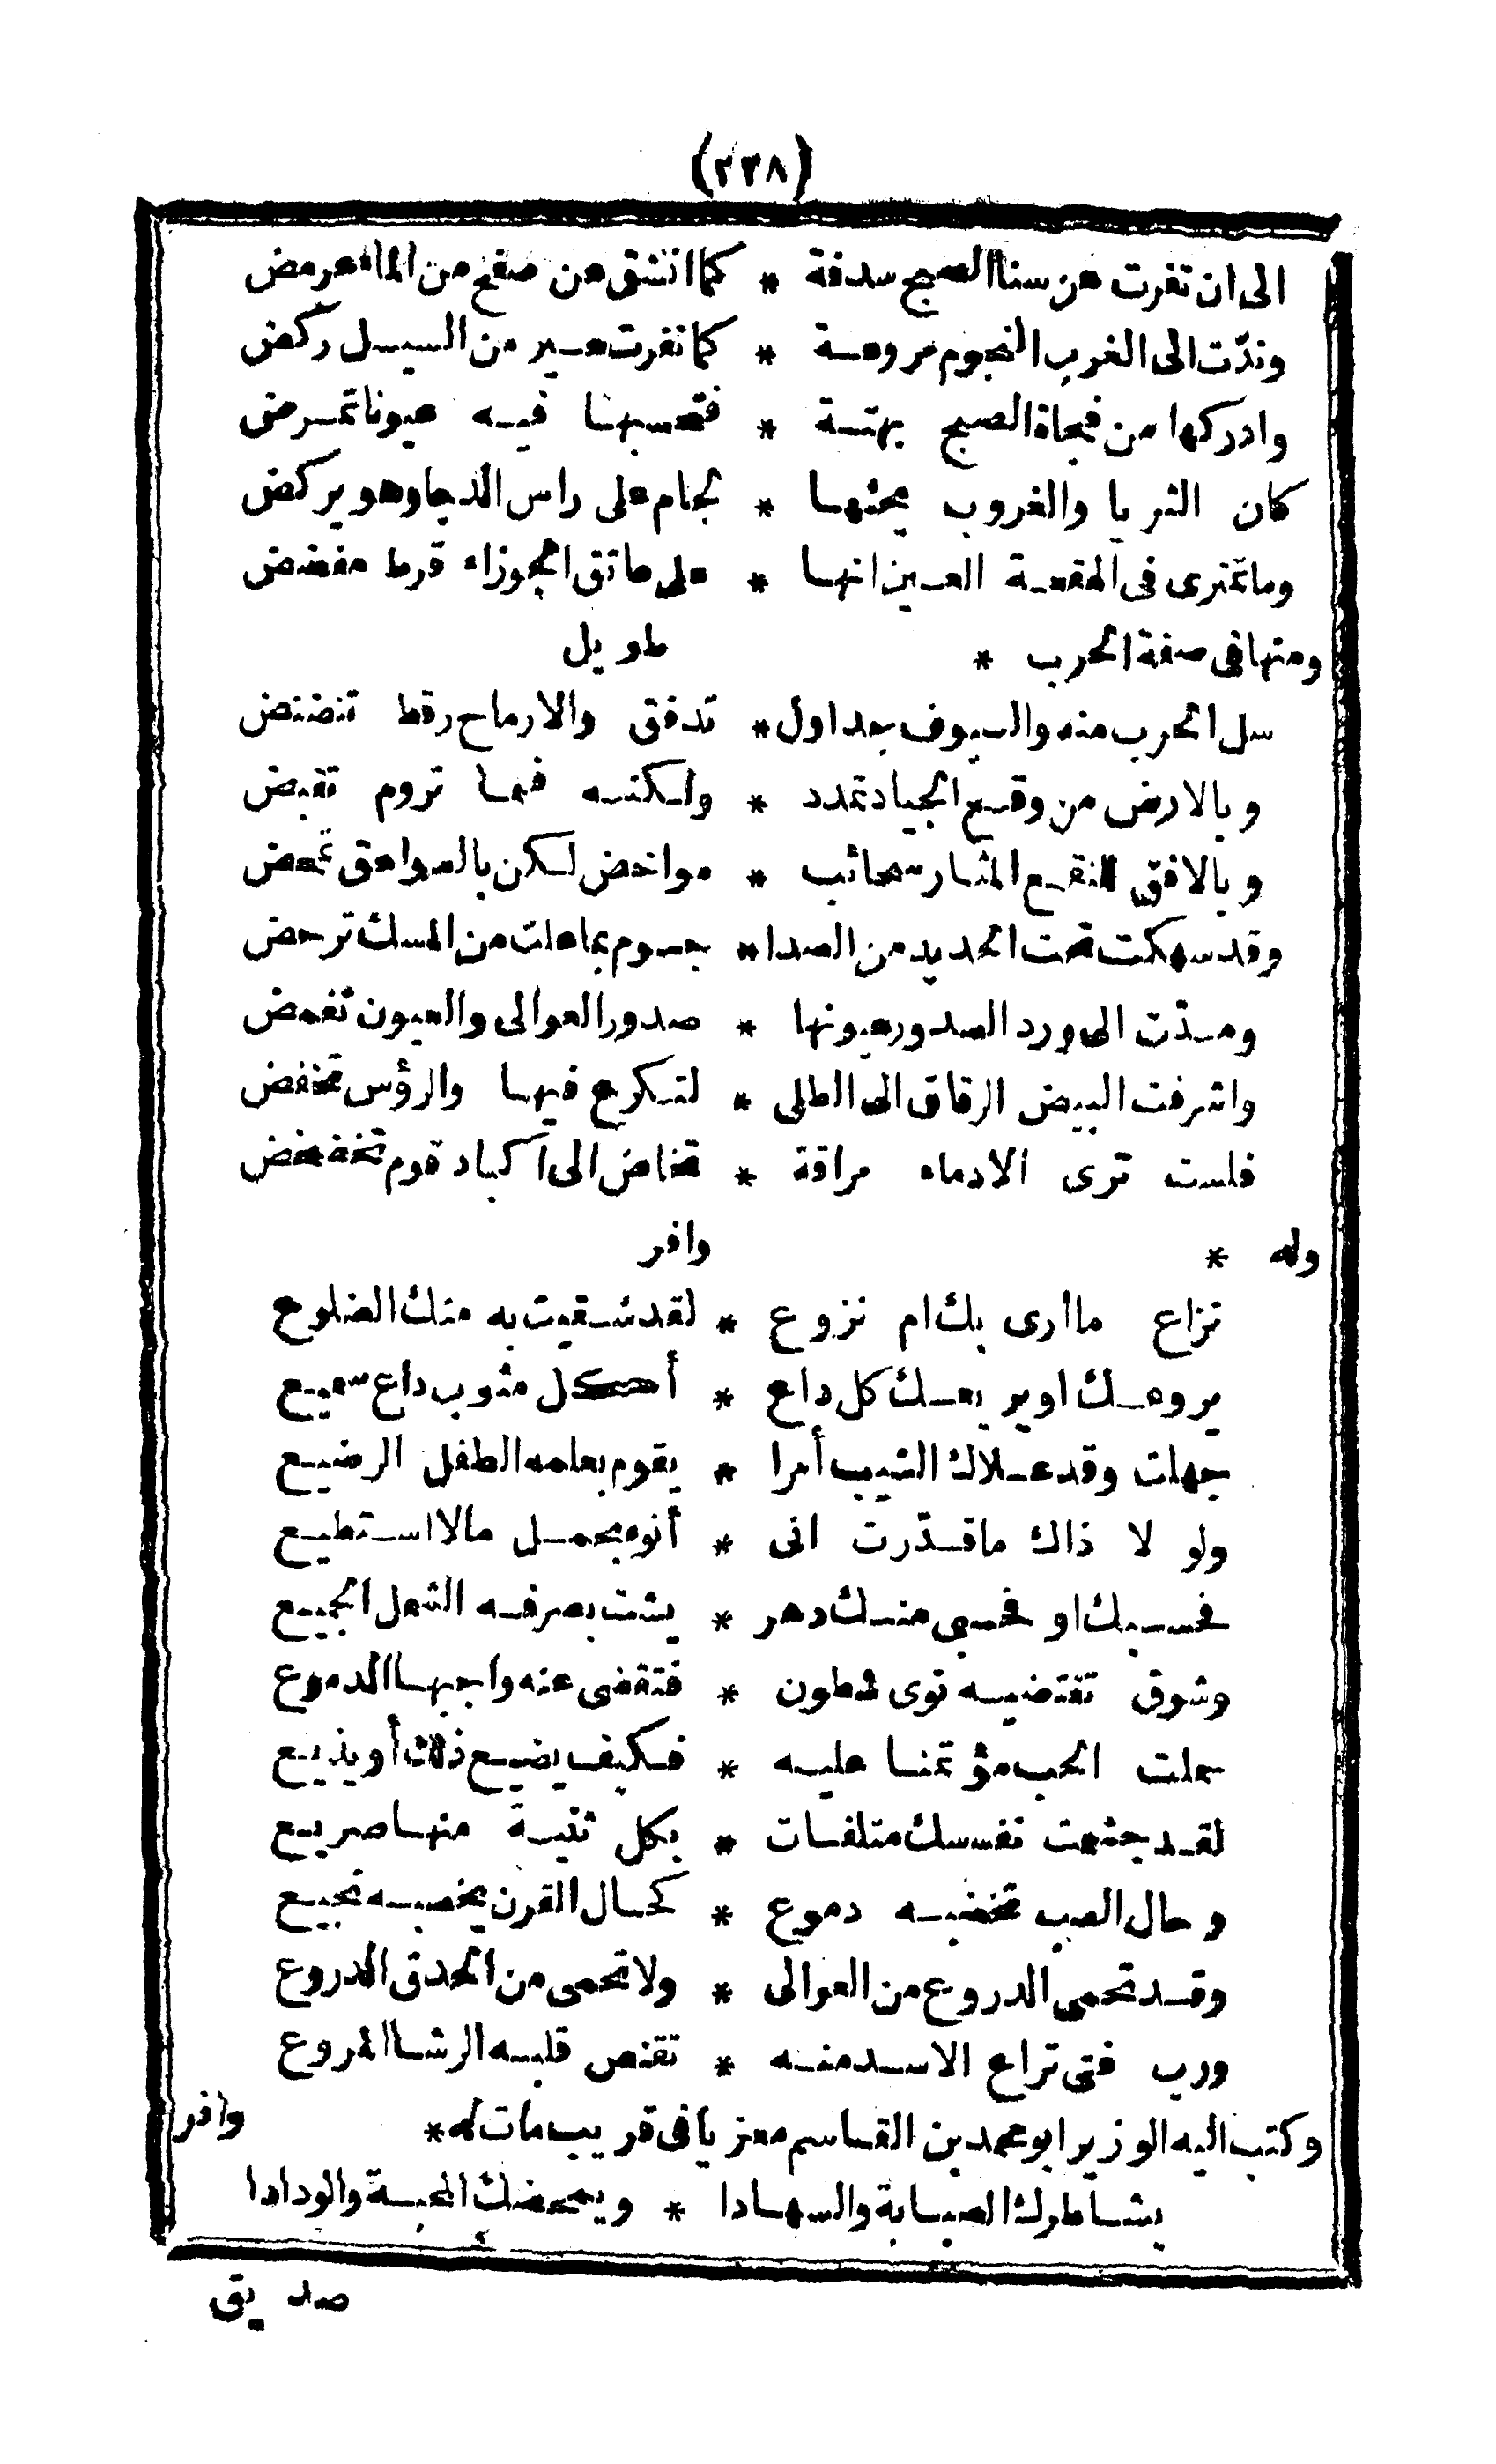 (٢٣٨)
الى ان تفرت عن سنا الصبح سدفة * كما انشق عن صفح من الماء عرمض
وندّت الى الغرب النجوم مروعة * كما نفرت عير من السيل ركض
وادركها من فجاة الصبح بهتة * فتحسبها فيه عيونا تمرض
كان الثريا والغروب يحثها * لجام على راس الدجا وهو يركض
وما تمترى فى الهقعة العين انها * على عاتق الجوزاء قرط مفضض
ومنها فى صفة الحرب * طويل
سل الحرب منه والسيوف جداول * تدفق والارماح رقط تنضنض
وبالارض من وقع الجياد تمدد * ولكنه فيما تروم تقبض
وبالافق للنقع المثار سحائب * مواخض لكن بالصواعق تمخض
وقد سهكت تحت الحديد من الصدا * جسوم بما علت من المسك ترحض
ومدّت الى ورد الصدور عيونها * صدور العوالى والعيون تغمض
واشرفت البيض الرقاق الى الطلى * لتكرع فيها والرؤس تخفض
فلست ترى الا دماء مراقة * تخاض الى اكباد قوم تخضخض
وله * وافر
نزاع ماأرى بك ام نزوع * لقد شقيت به منك الضلوع
يروعك او يريعك كل داع * أكل مثوب داع سميع
جهلت وقد علاك الشيب أمرا * يقوم بعلمه الطفل الرضيع
ولو لا ذاك ماقدّرت انى * أنوء بحمل مالا استطيع
فحسبك او فحسبى منك دهر * يشت بصرفه الشمل الجميع
وشوق تقتضيه نوى شطون * فتقضى عنه واجبها الدموع
حملت الحب مؤتمنا عليه * فكيف يضيع ذلك أو يذيع
لقد جشمت نفسك متلفات * بكل ثنية منها صريع
وحال الصب تخضبه دموع * كحال القرن يخضبه نجيع
وقد تحمى الدروع من العوالى * ولا تحمى من الحدق الدروع
ورب فتى تراع الاسد منه * تقنص قلبه الرشا المروع
وكتب اليه الوزير ابو محمد بن القاسم معزيا فى قريب مات له * وافر
يشاطرك الصبابة والسهادا * ويمحضك المحبة والودادا
صديق